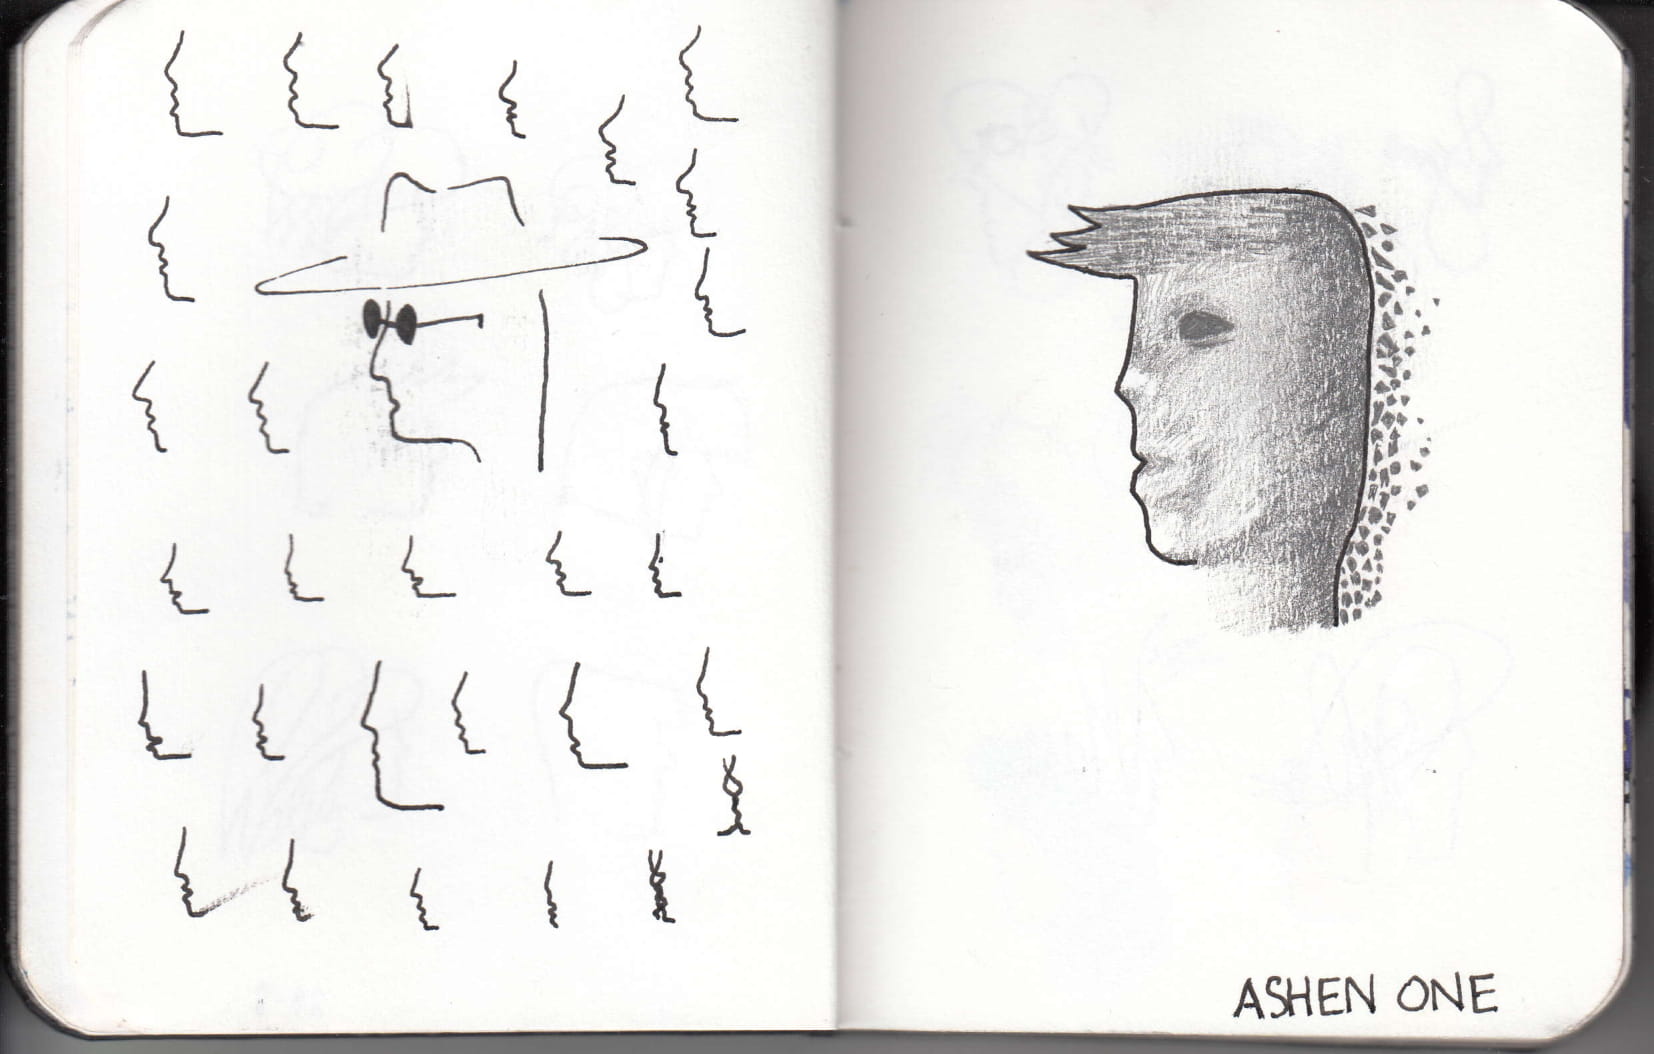 ASHEN ONE